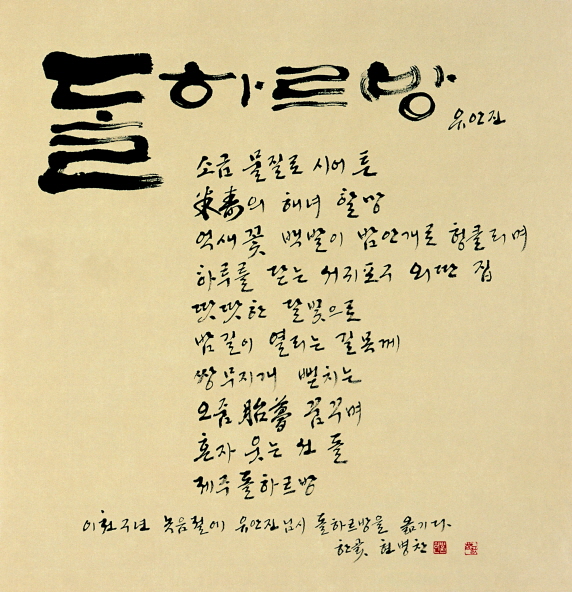 돌하르방
유안진
소금 물질로 시어 튼
米壽의 해녀 할망
억새꽃 백발이 밤안개로 헝클리며
하루를 닫는 서귀포구 외딴 집
땃땃한 달빛으로
밤길이 열리는 길목께
쌍무지개 뻗치는
오줌 胎夢 꿈꾸며
혼자 웃는 산 돌
제주 돌하르방
이천구년 늦음철에 유안진님시 돌하르방을 옮기다.
한곬 현병찬